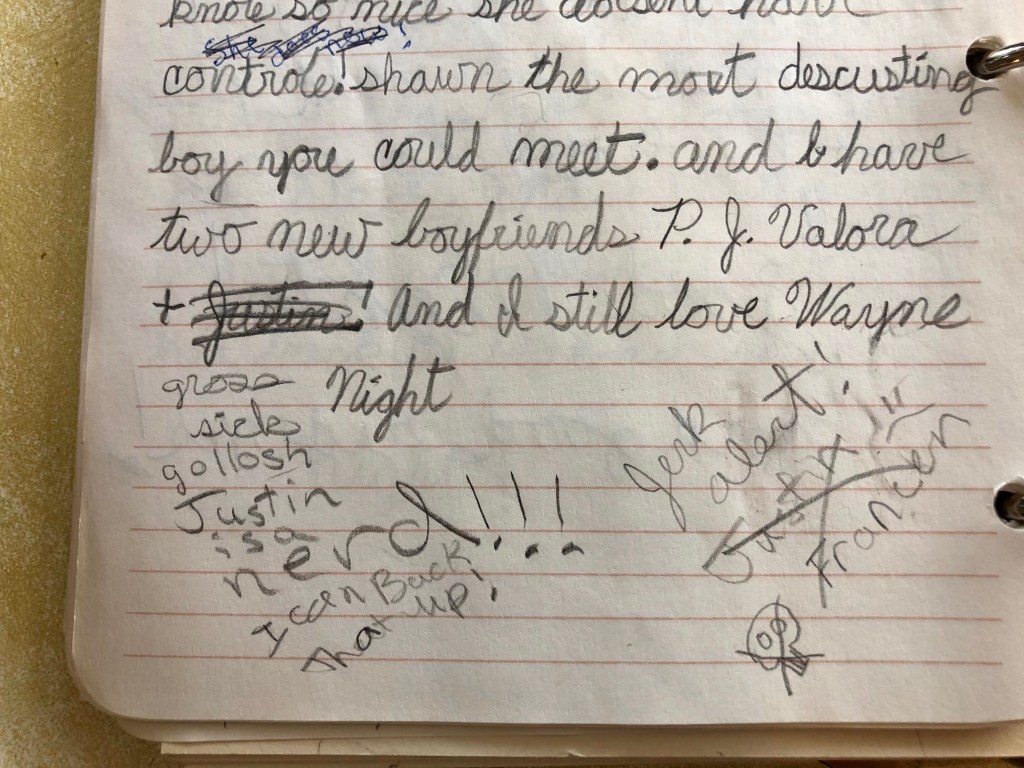 knole so nice she doesent have
she does now!
controle! shawn the most descusting
boy you could meet. and I have
two new boyfriends P. J. Valora
+ Justin! And I still love Wayne
Night
gross
sick
gollosh
Justin
is a
nerd!!!
I can Back
that up!
Jerk
alert!
Justin
Francen